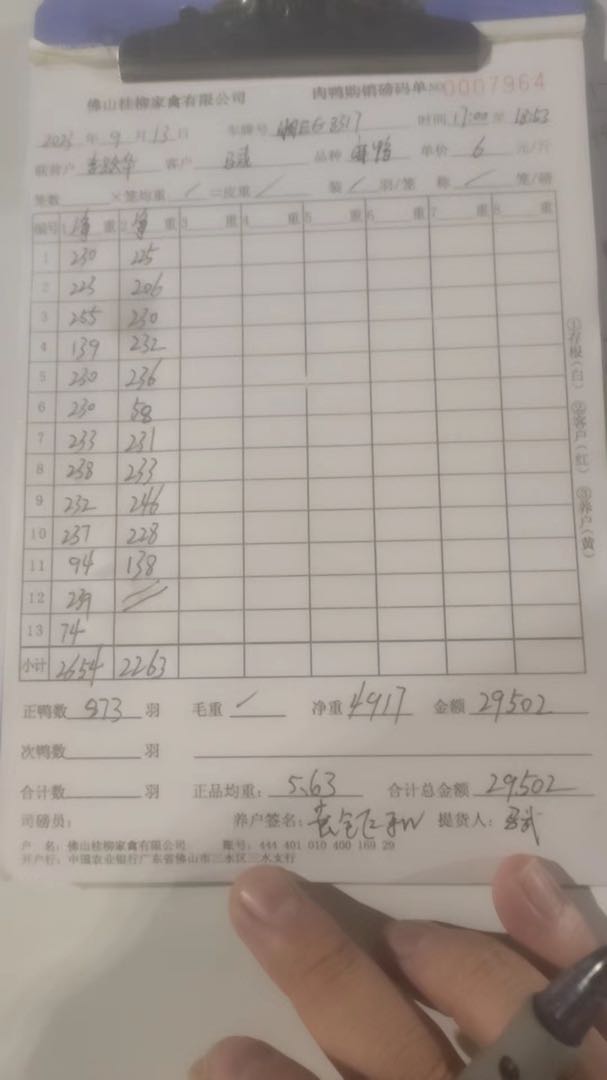 佛山桂柳家禽有限公司 肉鸭购销磅码单 NO 0007964
2023 年 9 月 13 日 车牌号 时间 17:00 至 18:53
客户 品种 单价 6 元/斤
笼数 ×笼均重 / =皮重 / 装 / 羽/笼 称 / 笼/磅
编号 1 净 重 2 净 重 3 重 4 重 5 重 6 重 7 重 8 重
1 230 225
2 223 206
3 255 230
4 139 232
5 230 236
6 230 58
7 233 231
8 238 233
9 232 246
10 237 228
11 94 138
12 239
13 74
小计 2654 2263
正鸭数 873 羽 毛重 / 净重 4917 金额 29502
次鸭数 羽
合计数 羽 正品均重: 5.63 合计总金额 29502
司磅员: 养户签名: 提货人:
户 名: 佛山桂柳家禽有限公司 账号: 444 401 010 400 169 29
开户行: 中国农业银行广东省佛山市三水区三水支行
①存根(白) ②客户(红) ③养户(黄)